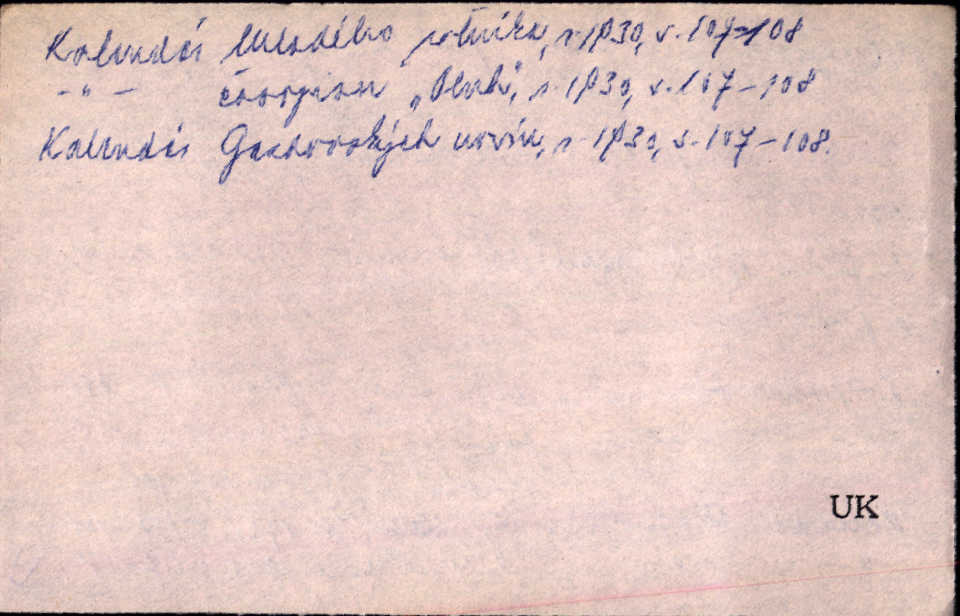 Kalendár Mladého roľníka, r. 1930, s. 107-108
-"- časopisu „Pluh", r. 1930, s. 107-108
Kalendár Gazdovských novín, r. 1930, s. 107-108.
UK